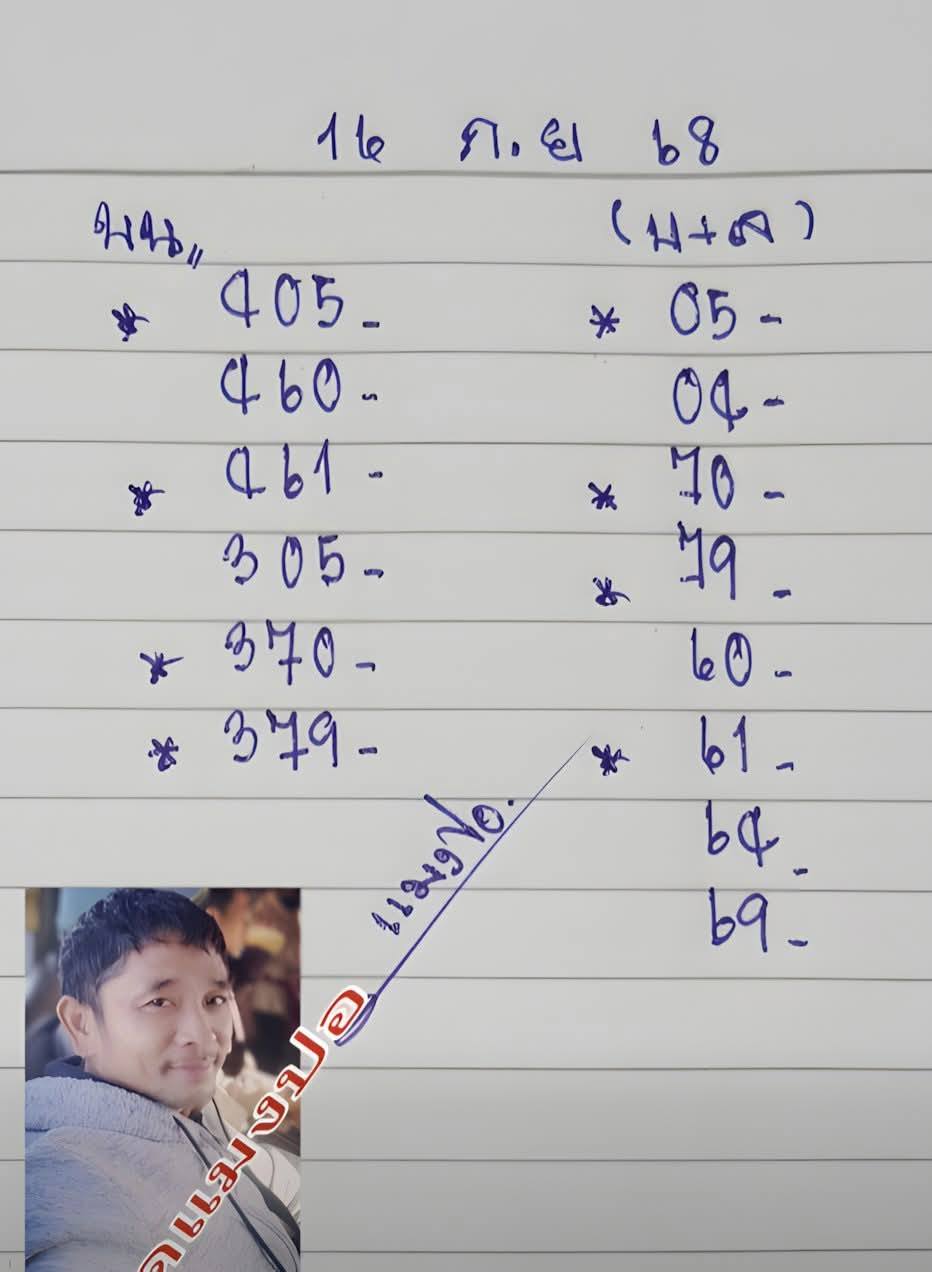 16 ก.ย 68
บน,,
* 405-
460-
* 461-
305-
* 370-
* 379-
(บ+ล)
* 05-
04-
* 70-
* 79-
60-
* 61-
64-
69-
แมงปอ.
แมงปอ